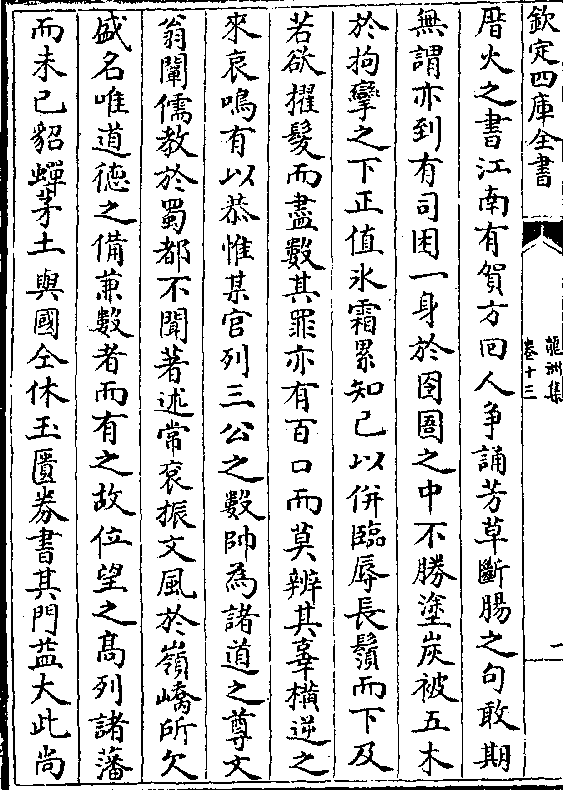 欽定四庫全書
龍洲集
卷十三
一
厝火之書江南有賀方回人爭誦芳草斷腸之句敢期
無謂亦到有司困一身於囹圄之中不勝塗炭被五木
於拘攣之下正值氷霜累知己以併臨辱長鬚而下及
若欲擢髮而盡數其罪亦有百口而莫辨其辜橫逆之
來哀鳴有以恭惟某官列三公之數帥為諸道之尊文
翁闡儒教於蜀都不聞著述常衮振文風於嶺嶠所欠
盛名唯道德之備兼數者而有之故位望之髙列諸藩
而未已貂蟬茅土與國仝休玉匱券書其門益大此尚